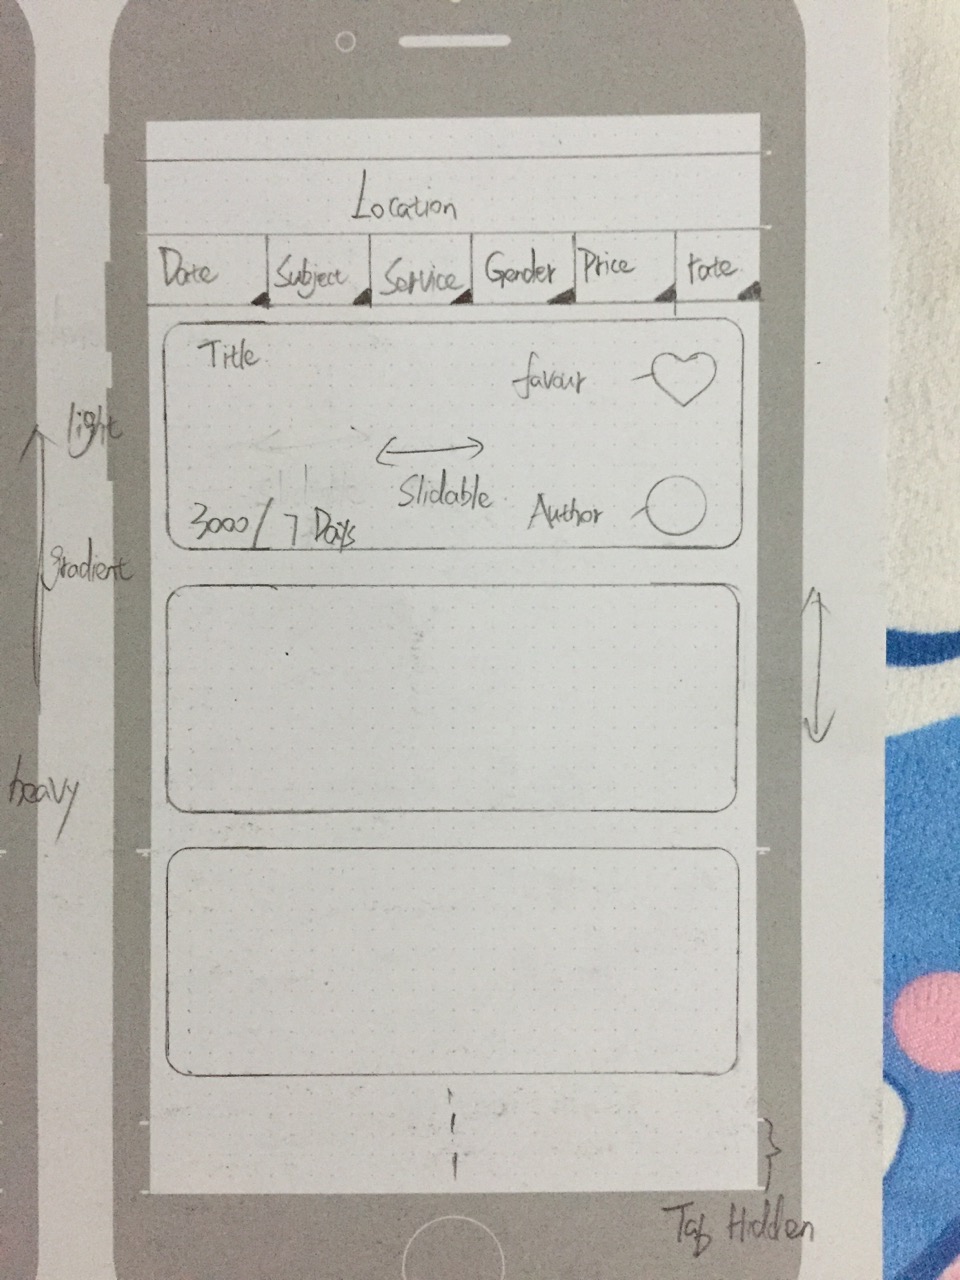 Location
Date
Subject
Service
Gender
Price
rate
Title
favour
Slidable
Author
3000/ 7 Days
light
gradient
heavy
Tab Hidden